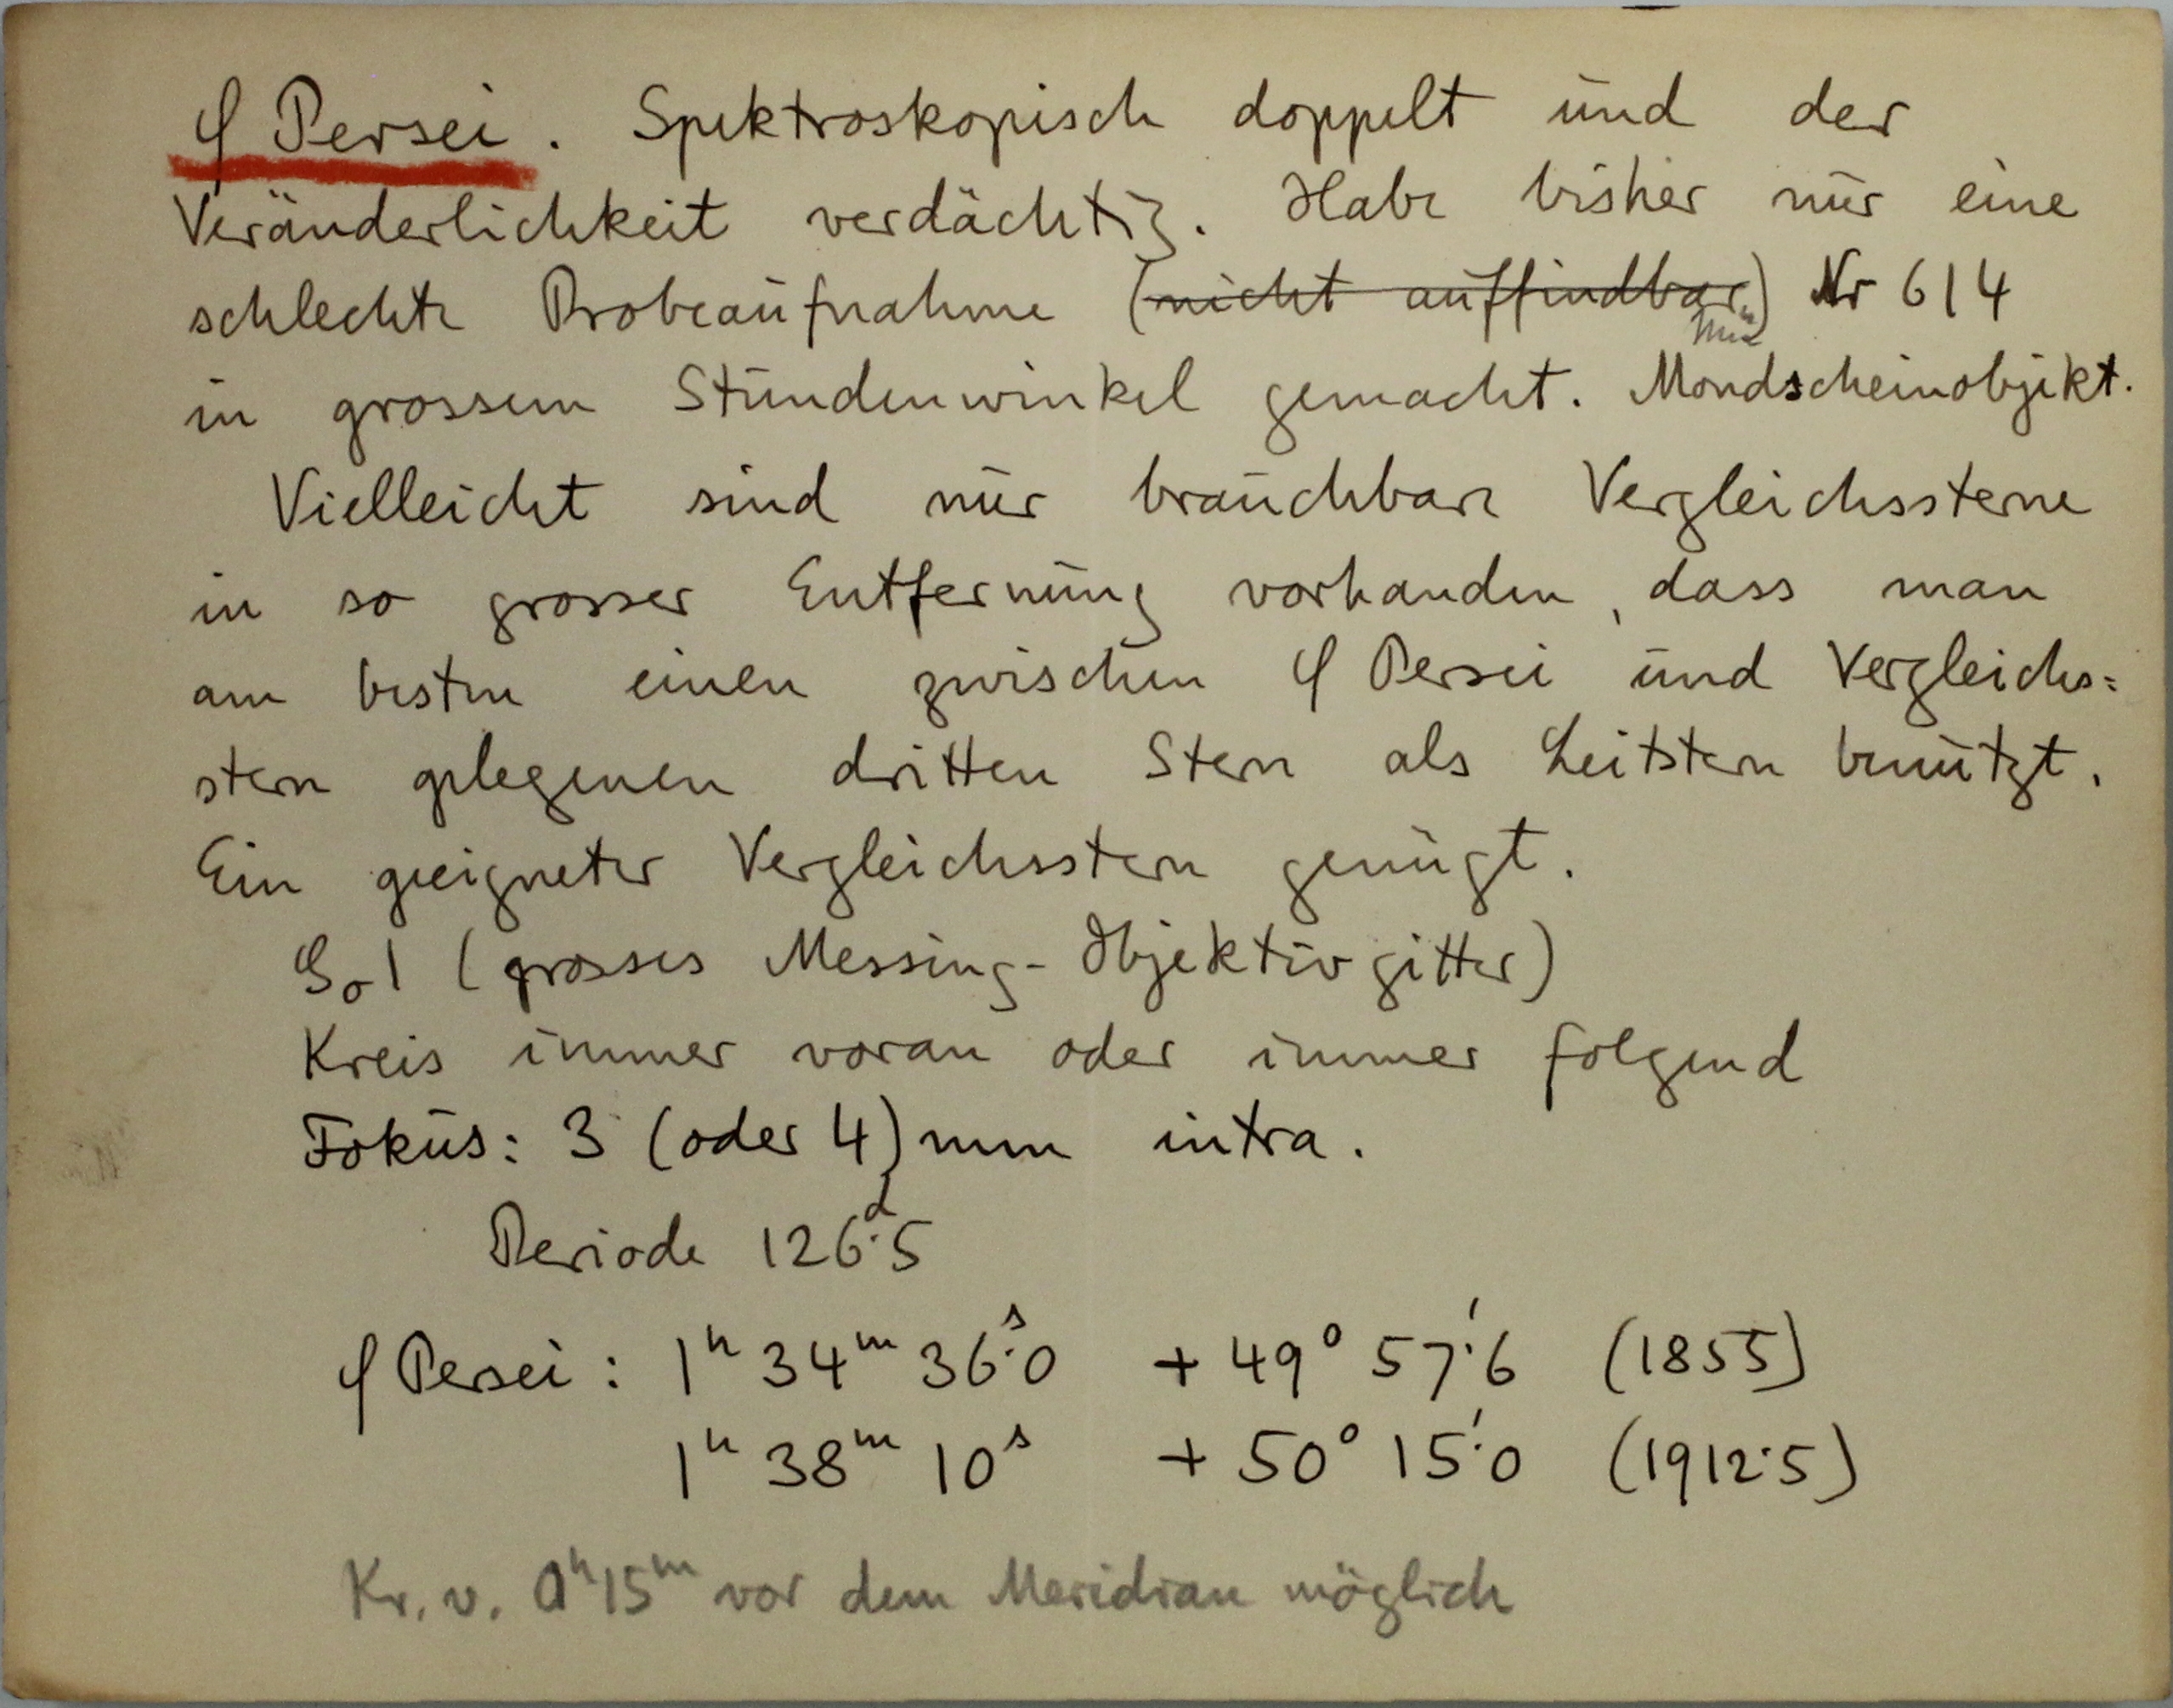 φ Persei. Spektroskopisch doppelt und der
Veränderlichkeit verdächtig. Habe bisher nur eine
schlechte Probeaufnahme (nicht auffindbar) Nr 614
in grossem Stundenwinkel gemacht. Mondscheinobjekt.
Vielleicht sind nur brauchbare Vergleichssterne
in so grosser Entfernung vorhanden, dass man
am besten einen zwischen φ Persei und Vergleichs=
stern gelegenen dritten Stern als Leitstern benützt.
Ein geeigneter Vergleichsstern genügt.
(grosses Messing-Objektivgitter)
Kreis immer voran oder immer folgend
Fokus: 3 (oder 4) mm intra.
Periode 126ᵈ.5
φ Persei: 1ʰ 34ᵐ 36ˢ.0 + 49° 57'.6 (1855)
1ʰ 38ᵐ 10ˢ + 50° 15'.0 (1912.5)
Kr. v. 0ʰ15ᵐ vor dem Meridian möglich